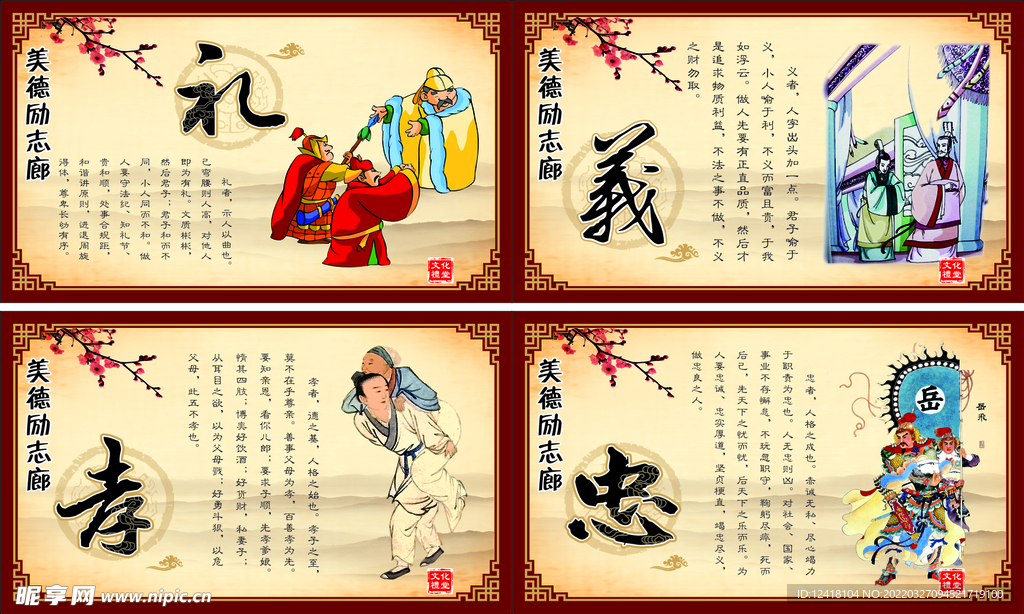 美德励志廊
礼
礼者，示人以曲也。
己弯腰则人高，对他人
即为有礼。文质彬彬，
然后君子；君子和而不
同，小人同而不和。做
人要守法纪、知礼节、
贵和顺，处事合规距，
和谐讲原则，进退周旋
得体，尊卑长幼有序。
文化
禮堂
美德励志廊
義
义者，人字出头加一点。君子喻于
义，小人喻于利，不义而富且贵，于我
如浮云。做人先要有正直品质，然后才
是追求物质利益，不法之事不做，不义
之财勿取。
文化
禮堂
美德励志廊
孝
孝者，德之基，人格之始也。孝子之至，
莫不在乎尊亲。善事父母为孝，百善孝为先。
要知亲恩，看你儿郎；要求子顺，先孝爹娘。
惰其四肢；博奕好饮酒；好货财，私妻子；
从耳目之欲，以为父母戮；好勇斗狠，以危
父母，此五不孝也。
文化
禮堂
美德励志廊
忠
忠者，人格之成也。赤诚无私、尽心竭力
于职责为忠也。人无忠则凶。对社会、国家、
事业不存懈怠，不玩忽职守，鞠躬尽瘁，死而
后已，先天下之忧而忧，后天下之乐而乐。为
人要忠诚、忠实厚道，坚贞梗直，竭忠尽义，
做忠良之人。
岳
岳飛
文化
禮堂
昵享网 www.nipic.cn
ID:12418104 NO:20220327094521719100